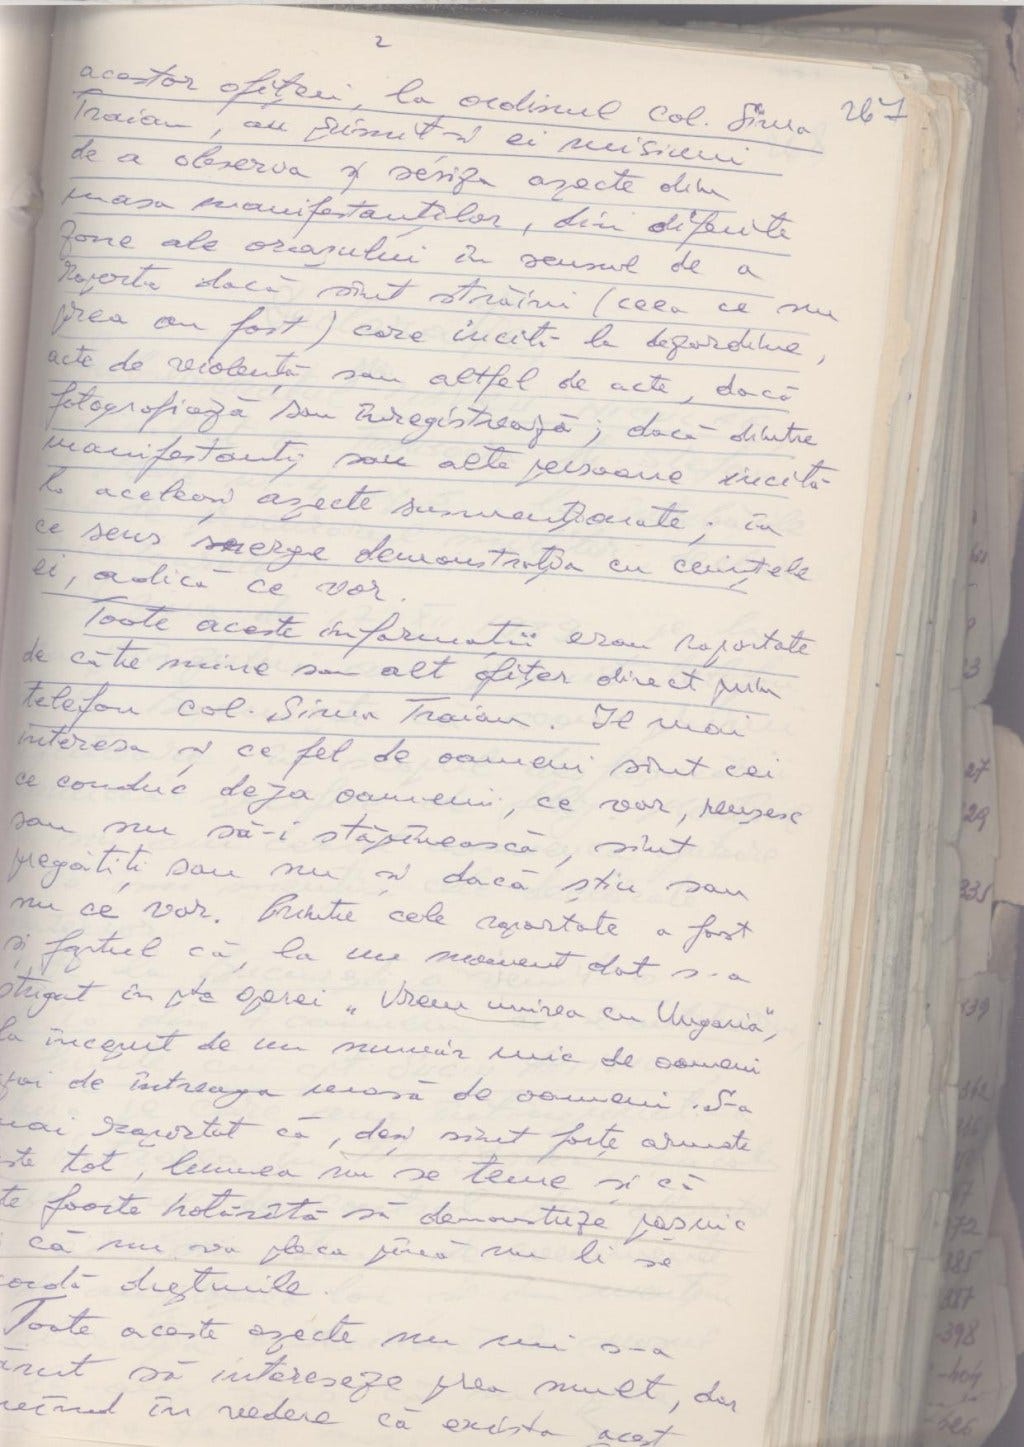 2
267
acestor ofițeri, la ordinul col. Sima
Traian, au primit și ei misiuni
de a observa și sesiza aspecte din
masa manifestanților, din diferite
zone ale orașului în sensul de a
raporta dacă sînt străini (ceea ce nu
prea au fost) care incită la dezordine,
acte de violență sau altfel de acte, dacă
fotografiază sau înregistrează; dacă dintre
manifestanți sau alte persoane incită
la aceleași aspecte susmenționate; în
ce sens merge demonstrația cu cerințele
ei, adică ce vor.
Toate aceste informații erau raportate
de către mine sau alt ofițer direct prin
telefon col. Sima Traian. Îl mai
interesa și ce fel de oameni sînt cei
ce conduc deja oamenii, ce vor, reușesc
sau nu să-i stăpînească, sînt
pregătiți sau nu și dacă știu sau
nu ce vor. Printre cele raportate a fost
și faptul că, la un moment dat s-a
strigat în p-ța operei „Vrem unirea cu Ungaria",
la început de un număr mic de oameni
apoi de întreaga masă de oameni. S-a
mai raportat că, deși sînt forțe armate
ste tot, lumea nu se teme și că
te foarte hotărîtă să demonstreze pașnic
că nu va pleca pînă nu li se
cordă drepturile.
Toate aceste aspecte nu mi s-a
ărut să intereseze prea mult, dar
în vedere că exista acest